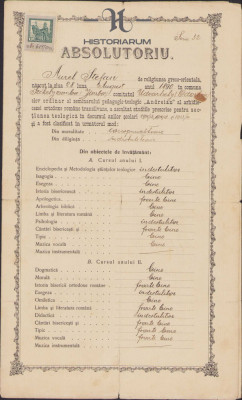 HISTORIARUM
ABSOLUTORIU.
Aurel Stefan de religiunea greco-orientală,
născut la 28 luna August anul 1890 în comuna
comitatul
ordinar al seminariului pedagogic-teologic "Andreian" al arhidiecezei
ortodocse române transilvănene, a ascultat studiile prescrise pentru
teologică în decursul anilor școlari
și a fost clasificat în următorul mod:
Din moralitate
Din diligință
Din obiectele de învățământ:
A. Cursul anului I.
Enciclopedia și Metodologia științelor teologice îndestulitor
Isagogia bine
Exegesa îndestulitor
Istoria bisericească foarte bine
Apologetica foarte bine
Arheologia biblică bine
Limba și literatura română bine
Psihologia îndestulitor
Cântări bisericești foarte bine
Tipic bine
Muzica vocală bine
Muzica instrumentală
B. Cursul anului II.
Dogmatică bine
Morală bine
Istoria bisericii ortodocse române foarte bine
Exegesa îndestulitor
Omiletica bine
Limba și literatura română foarte bine
Didactica îndestulitor
Cântări bisericești foarte bine
Tipic foarte bine
Muzica vocală foarte bine
Muzica instrumentală